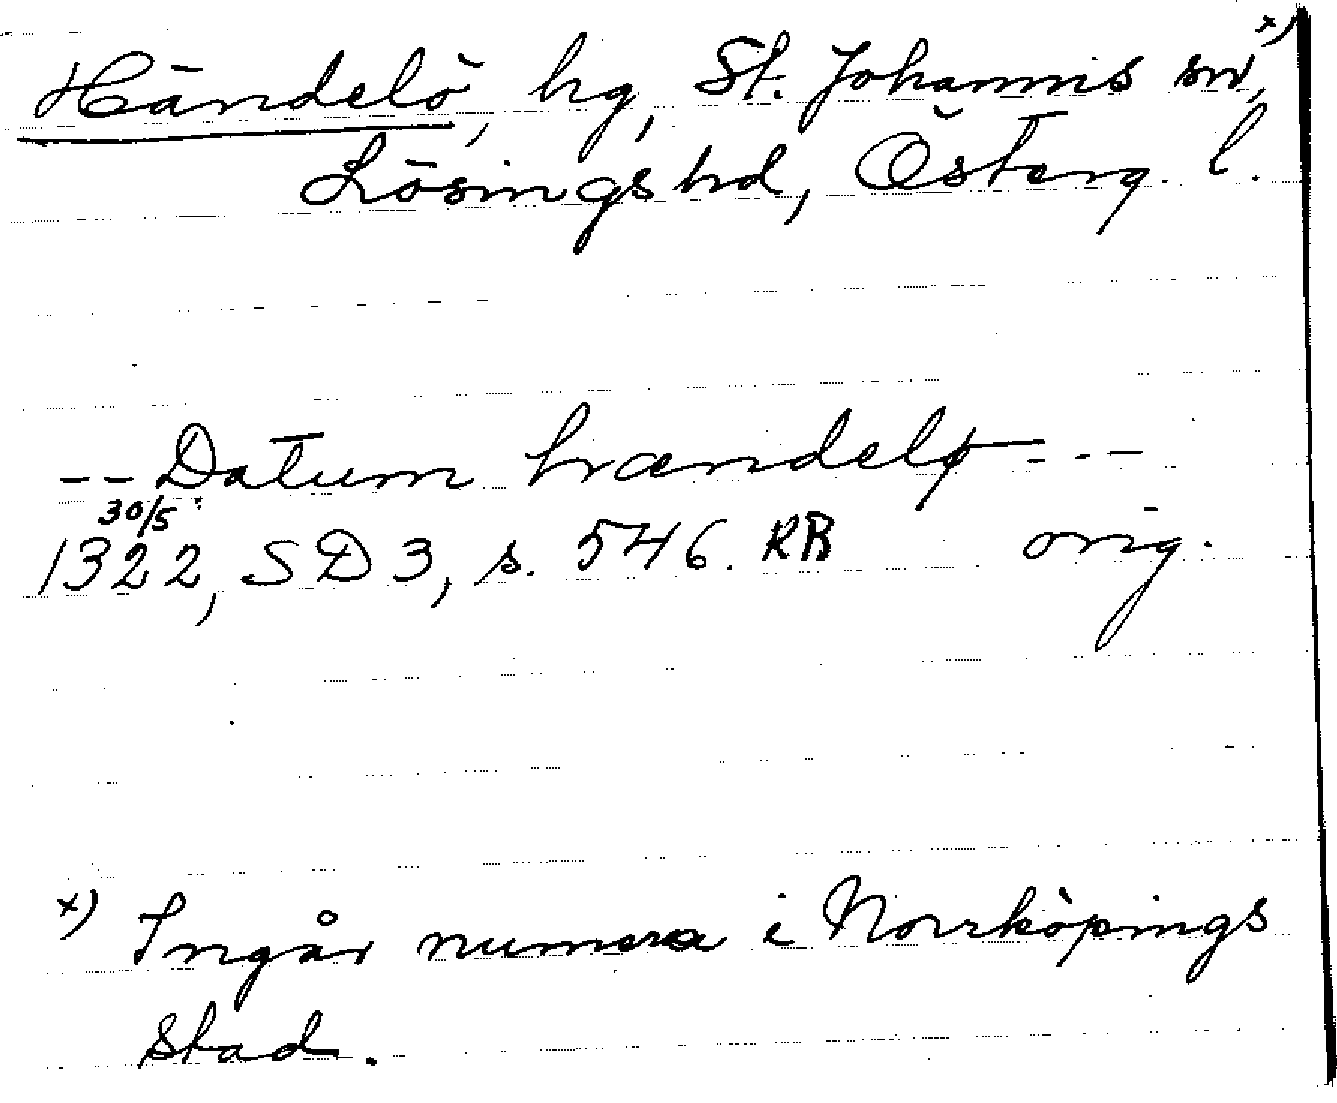 Händelö, hg, St. Johannis sn, x)
Lösings hd, Österg. l.
-- Datum hrændelø - - -
30/5
1322, SD 3, s. 546. RB orig.
x) Ingår numera i Norrköpings
stad.